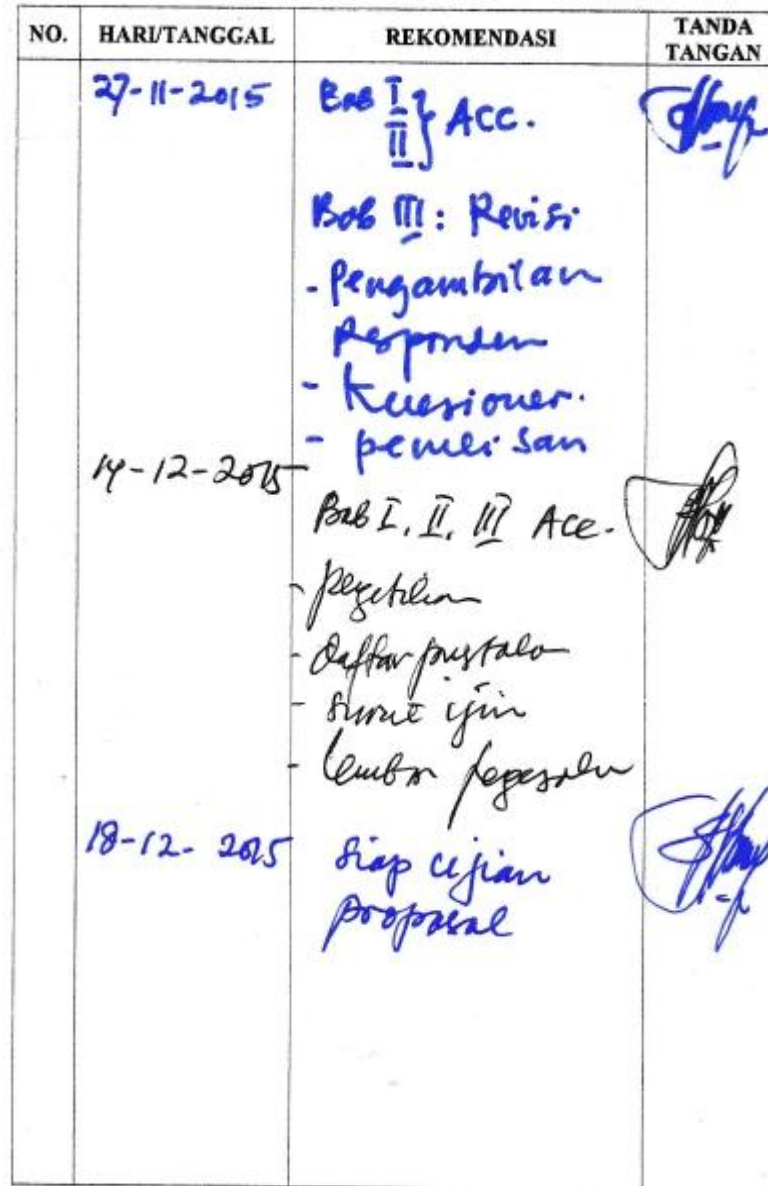 NO. HARI/TANGGAL REKOMENDASI TANDA TANGAN
27-11-2015 Bab I
II } ACC.
Bab III : Revisi
- Pengambilan
Responden
- Kuesioner.
- penulisan
14-12-2015
Bab I, II, III Acc.
- pengetikan
- daftar pustaka
- surat ijin
- lembar pengesahan
18-12-2015 siap ujian
proposal